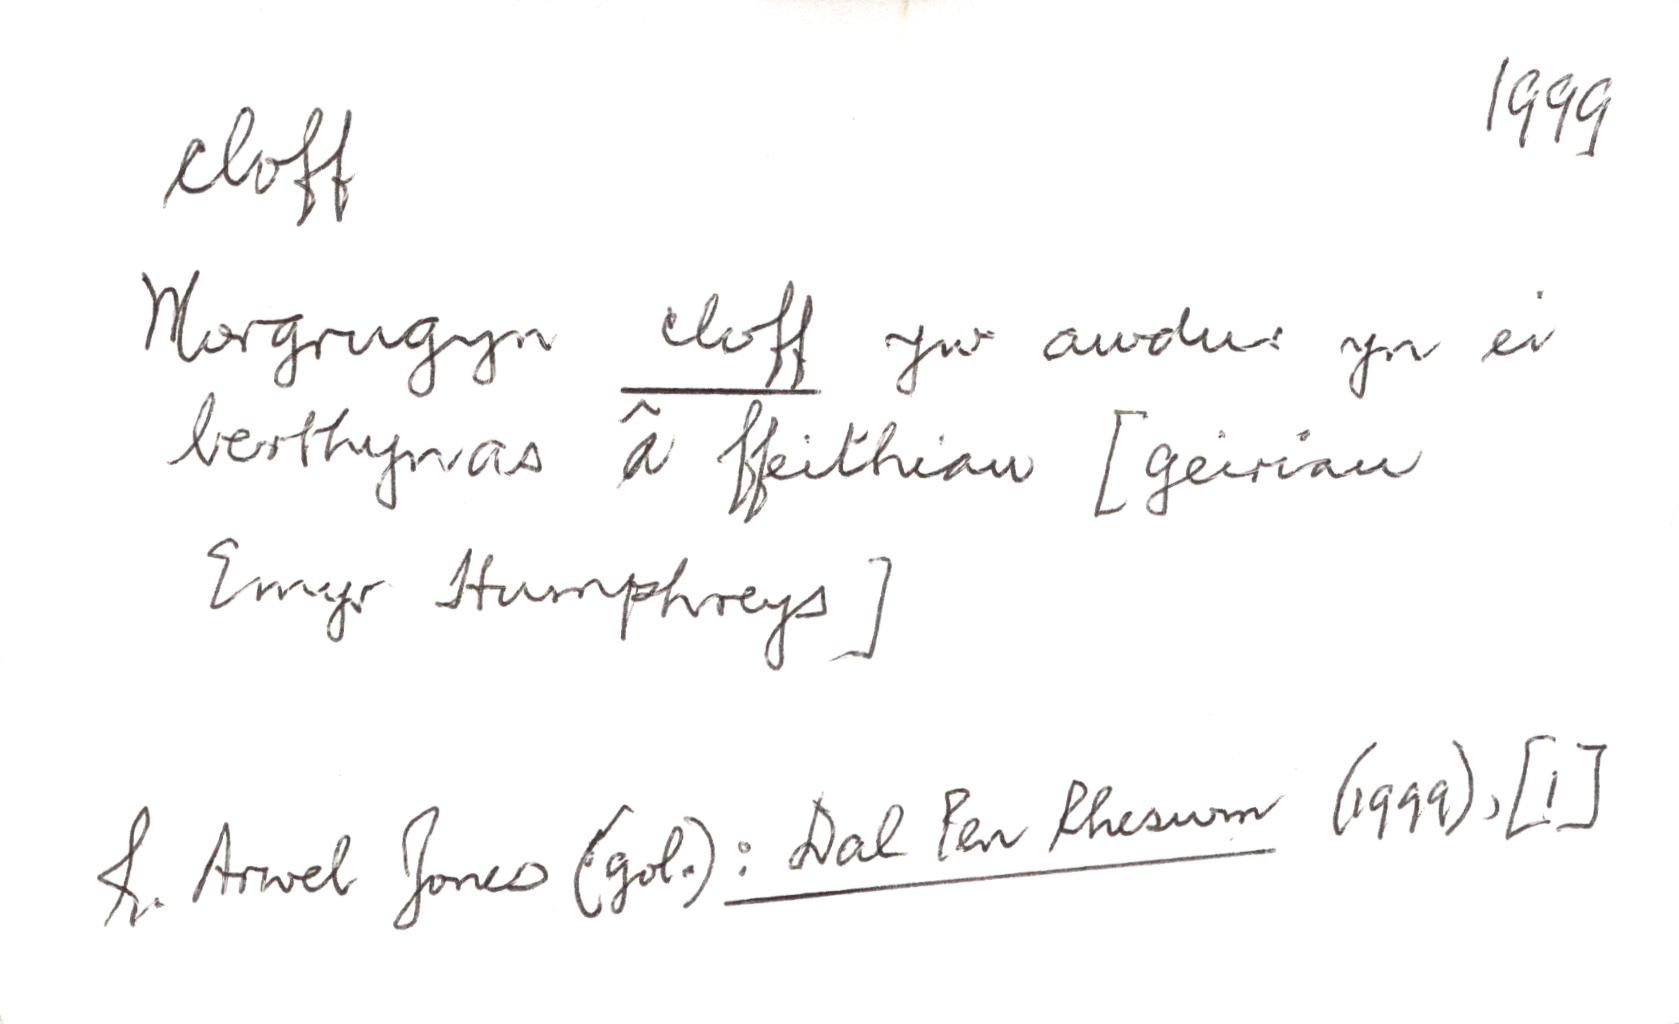 1999
cloff
Morgrugyn cloff yw awdur yn ei
berthynas â ffeithiau [geiriau
Emyr Humphreys]
R. Arwel Jones (gol.): Dal Pen Rheswm (1999), [i]